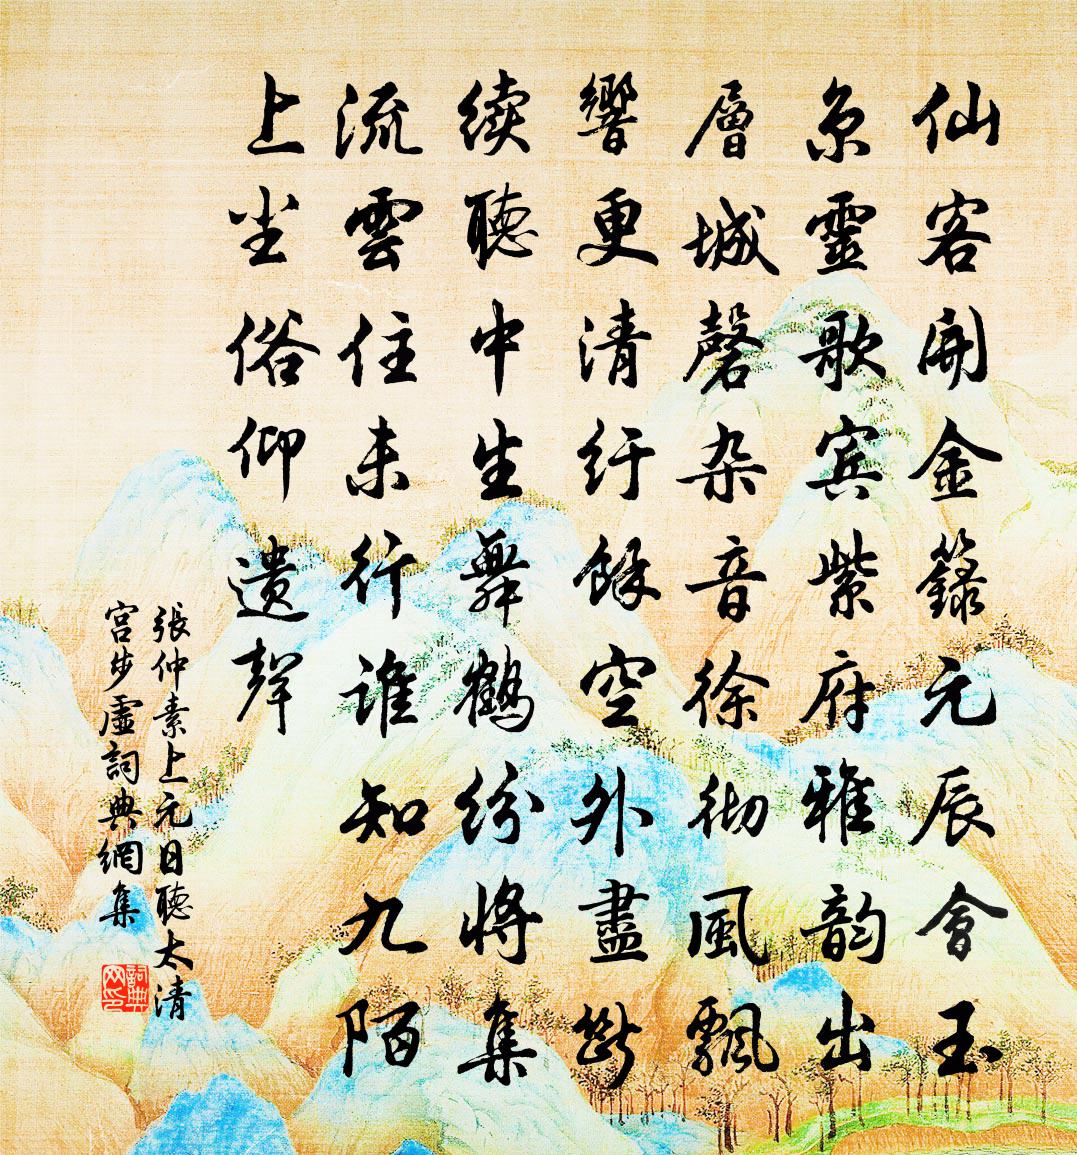 仙客開金籙元辰會玉
京靈歌宾紫府雅韵出
層城磬杂音徐彻風飄
響更清紆餘空外盡斷
续聴中生舞鶴紛將集
流雲住未行谁知九陌
上尘俗仰遗聲
張仲素上元日聴太清
宫步虛詞典網集
詞典网印